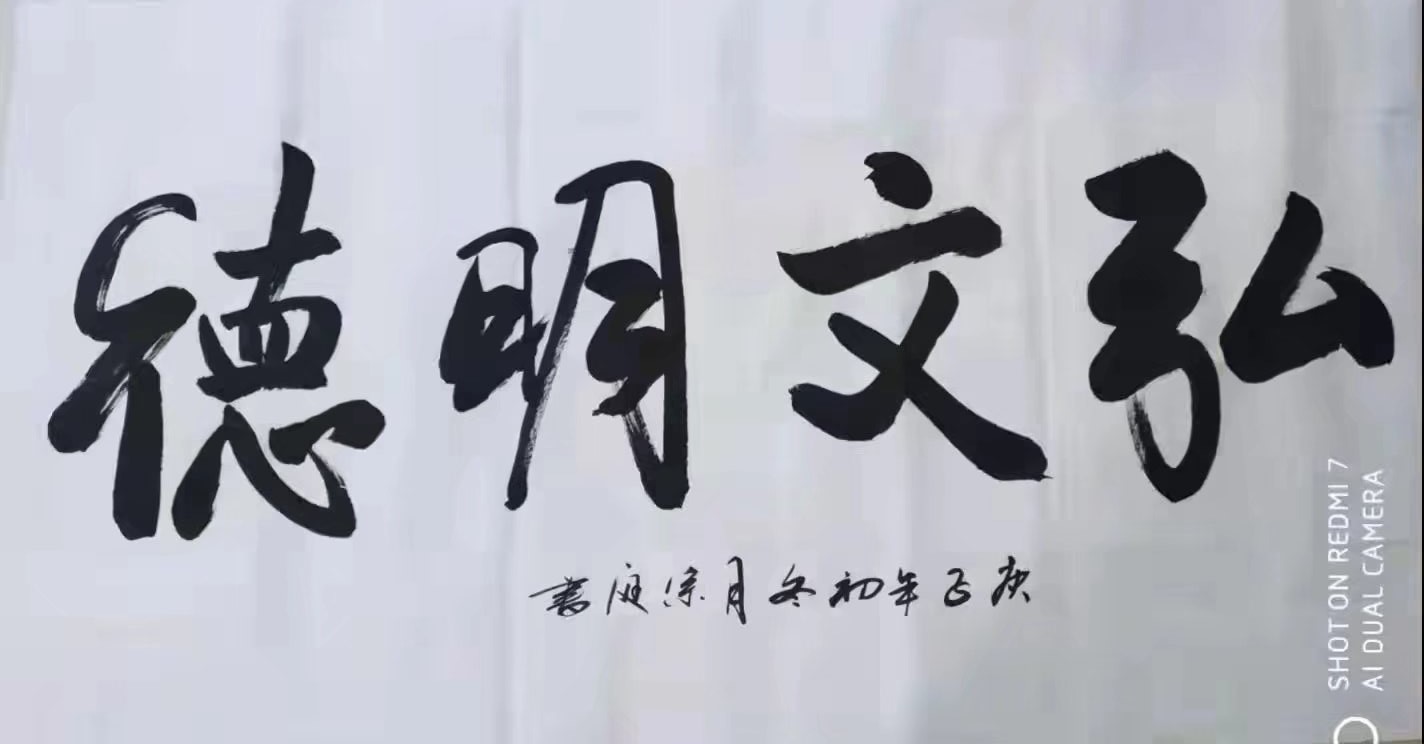 弘文明德
庚子年初冬月庭書
SHOT ON REDMI 7
AI DUAL CAMERA